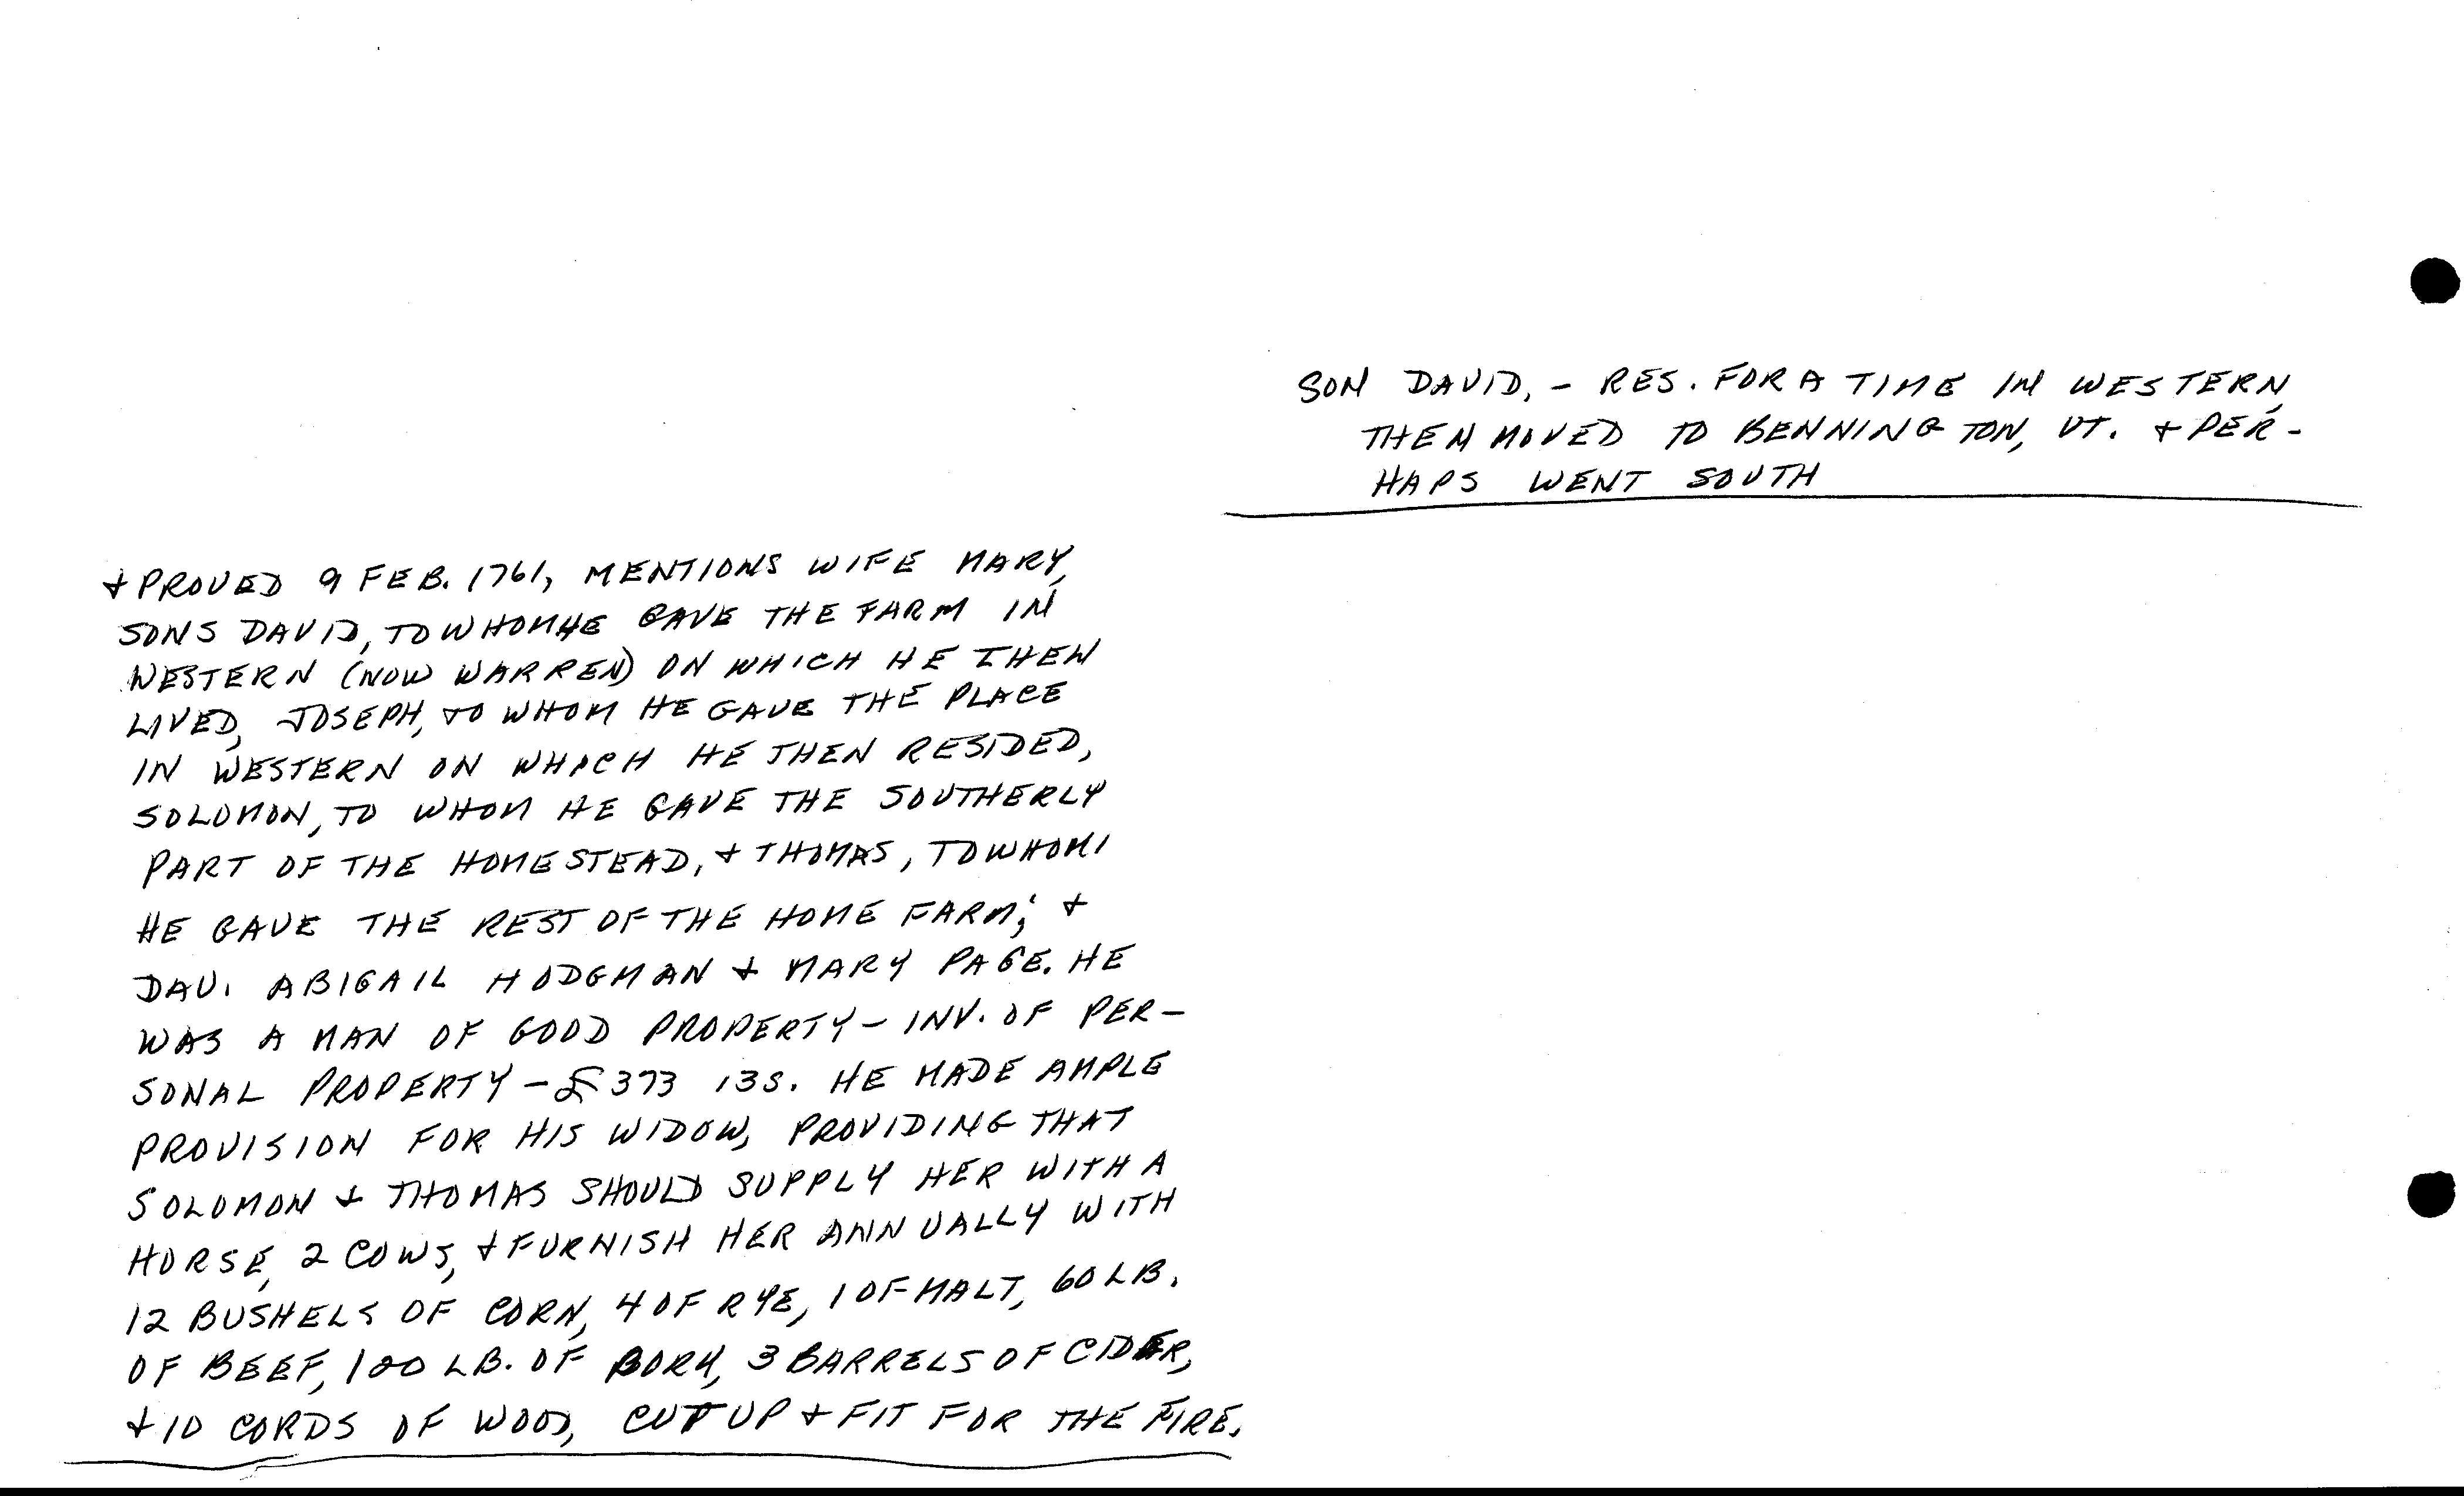 SON DAVID, - RES. FOR A TIME IN WESTERN,
THEN MOVED TO BENNINGTON, VT. & PER-
HAPS WENT SOUTH
& PROVED 9 FEB. 1761, MENTIONS WIFE MARY,
SONS DAVID, TO WHOM HE GAVE THE FARM IN
WESTERN (NOW WARREN) ON WHICH HE THEN
LIVED, JOSEPH, TO WHOM HE GAVE THE PLACE
IN WESTERN ON WHICH HE THEN RESIDED,
SOLOMON, TO WHOM HE GAVE THE SOUTHERLY
PART OF THE HOMESTEAD, & THOMAS, TO WHOM
HE GAVE THE REST OF THE HOME FARM; &
DAU. ABIGAIL HODGMAN & MARY PAGE. HE
WAS A MAN OF GOOD PROPERTY - INV. OF PER-
SONAL PROPERTY - £373 13S. HE MADE AMPLE
PROVISION FOR HIS WIDOW, PROVIDING THAT
SOLOMON & THOMAS SHOULD SUPPLY HER WITH A
HORSE, 2 COWS, & FURNISH HER ANNUALLY WITH
12 BUSHELS OF CORN, 4 OF RYE, 1 OF MALT, 60 LB.
OF BEEF, 100 LB. OF PORK, 3 BARRELS OF CIDER,
& 10 CORDS OF WOOD, CUT UP & FIT FOR THE FIRE.